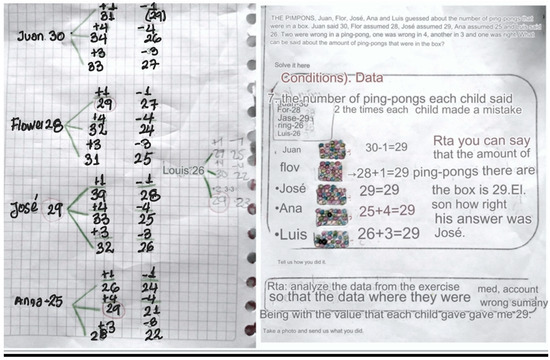 +1 -1
31 (29)
Juan 30 +4 -4
34 26
+3 -3
33 27
+1 -1
29 27
Flower 28 +4 -4
32 24
+3 -3
31 25
+1 -1
39 28
José 29 +4 -4
33 25
+3 -3
32 26
+1 -1
26 24
Anga-25 +4 -4
29 21
+3 -3
28 22
Louis:26
THE PIMPONS, Juan, Flor, José, Ana and Luis guessed about the number of ping pongs that
were in a box. Juan said 30, Flor assumed 28, José assumed 29, Ana assumed 25 and Luis said
26. Two were wrong in a ping-pong, one was wrong in 4, another in 3 and one was right. What
can be said about the amount of ping-pongs that were in the box?
Solve it here
Conditions). Data
7-the number of ping-pongs each child said
Juan-30
For-28
Jase-29
ring-26
Luis-26
2 the times each child made a mistake
• Juan 30-1=29
flov →28+1=29
•José 29=29
•Ana 25+4=29
•Luis 26+3=29
Rta you can say
that the amount of
ping-pongs there are
the box is 29.El.
son how right
his answer was
José.
Tell us how you did it.
Rta: analyze the data from the exercise med, account
so that the data where they were wrong sumány
Being with the value that each child gave gave me 29.
Take a photo and send us what you did.